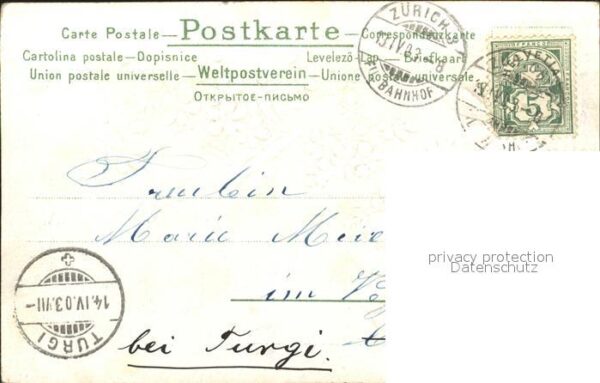 Carte Postale — Postkarte — Correspondenzkarte
Cartolina postale — Dopisnice Levelező-Lap — Briefkaart
Union postale universelle — Weltpostverein — Unione postale universale
Открытое-письмо
ZÜRICH
13.IV.03.-8
BAHNHOF
FRANCO
HELVETIA
5
Fräulein
Marie Meie
im
bei Turgi.
14.IV.03.VII-
TURGI
privacy protection
Datenschutz